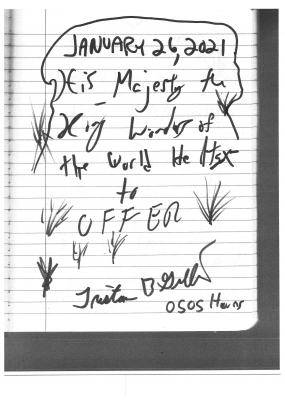 JANUARY 26, 2021
His Majesty the
King Wonders of
the World He Has
to
OFFER
Tristan
0505 Hours